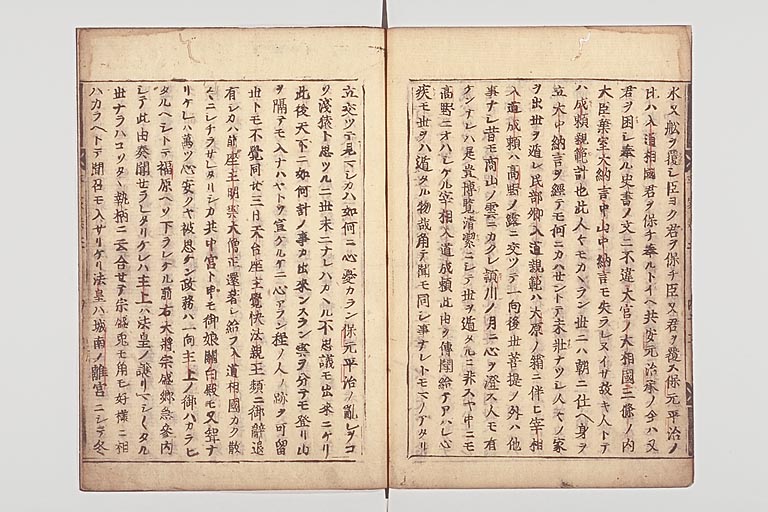 水又舩ヲ覆シ臣ヨク君ヲ保チ臣又君ヲ覆ス保元平治ノ
比ハ入道相國君ヲ保チ奉ルトイヘ共安元治承ノ今ハ又
君ヲ困シ奉ル史書ノ文ニ不違大官ノ大相國三條ノ内
大臣葉室大納言中山中納言モ失ラレヌイサ故キ人トテ
ハ成頼親範計也此人々モカヽラン世ニハ朝ニ仕ヘ身ヲ
立大中納言ヲ經テモ何ニカハセントテ未壮ナツシ人々ノ家
ヲ出世ヲ遁レ民部卿入道親範ハ大原ノ翁ニ伴ヒ宰相
入道成頼ハ高野ノ露ニ交ツテ一向後世菩提ノ外ハ他
事ナシ昔モ商山ノ雲ニカクレ頴川ノ月ニ心ヲ澄ス人モ有
ケンナレハ是豈博覧清潔ニシテ世ヲ遁タルニ非スヤ中ニモ
高野ニオハシケル宰相入道成頼此由ヲ傳聞給テアハレ心
疾モ世ヲハ遁タル物哉角テ聞モ同シ事ナレトモマノアタリ
立交ツテ見マシカハ如何ニ心憂カラン保元平治ノ亂レヲコ
ソ淺猿ト思ツルニ世末ニナレハカヽル不思議モ出來ニケリ
此後天下ニ如何計ノ事カ出來ンスラン雲ヲ分テモ登リ山
ヲ隔テモ入ナハヤトソ宣ケルケニ心アラン程ノ人ノ跡ヲ可留
世トモ不覺同廿三日天台座主覺快法親王頻ニ御辭退
有シカハ前座主明雲大僧正還著シ給フ入道相國カク散
々ニシチラサレタリシカ共中宮ト申モ御娘關白殿モ又聟ナ
リケレハ萬ツ心安クヤ被思ケン政務ハ一向主上ノ御ハカラヒ
タルヘシトテ福原ヘソ下ラレケル前右大將宗盛卿急參内
シテ此由奏聞セラレタリケレハ主上ハ法皇ノ譲リマシヽタル
世ナラハコソタヽ執柄ニ云合セテ宗盛兎モ角モ好様ニ相
ハカラヘトテ聞召モ入サリケリ法皇ハ城南ノ離宮ニシテ冬